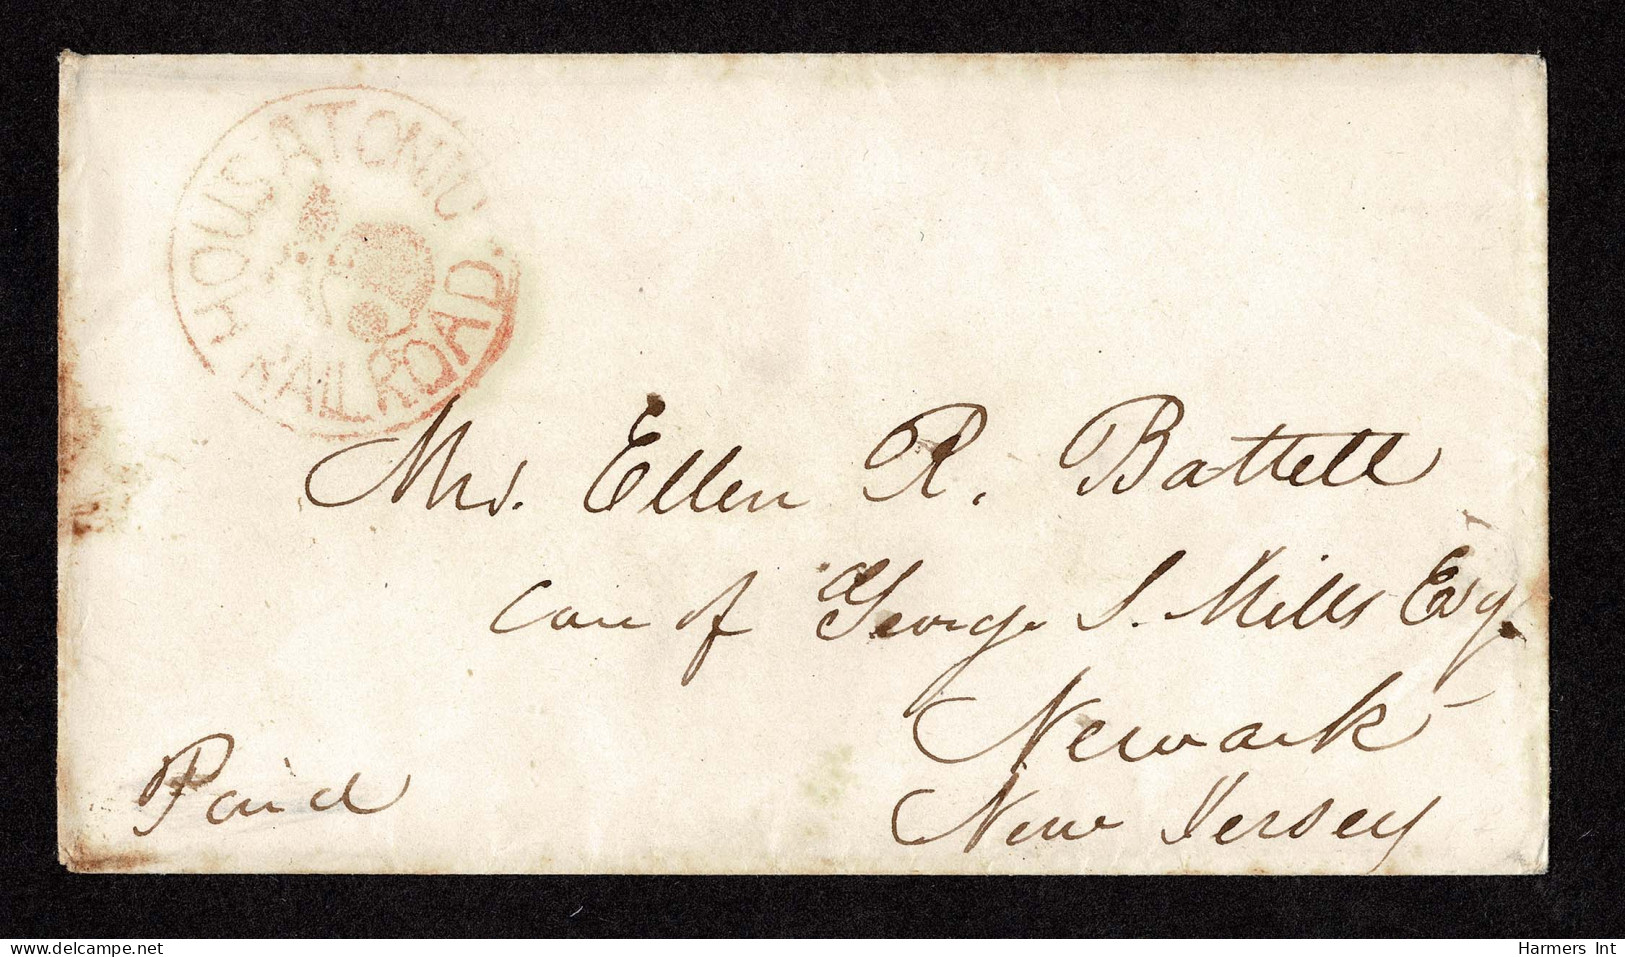 HOUSATONIC
RAILROAD.
Mrs. Ellen R. Battell
Care of George S. Mills Esq.
Newark
New Jersey
Paid
delcampe.net
Harmers Int